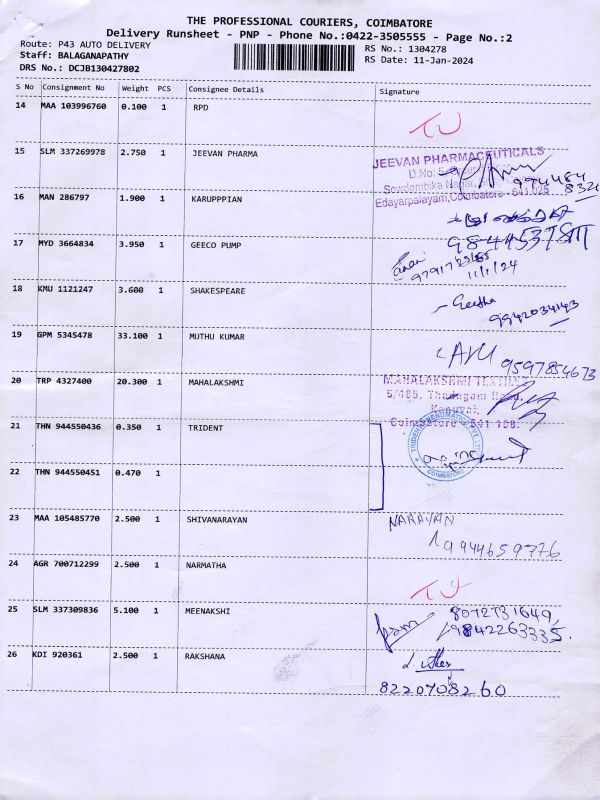 THE PROFESSIONAL COURIERS, COIMBATORE
Delivery Runsheet - PNP - Phone No.:0422-3505555 - Page No.:2
Route: P43 AUTO DELIVERY RS No.: 1304278
Staff: BALAGANAPATHY RS Date: 11-Jan-2024
DRS No.: DCJB130427802
S No Consignment No Weight PCS Consignee Details Signature
14 MAA 103996760 0.100 1 RPD
15 SLM 337269978 2.750 1 JEEVAN PHARMA JEEVAN PHARMACEUTICALS
Edayarpalayam, Coimbatore - 641 025
16 MAN 286797 1.900 1 KARUPPPIAN
17 MYD 3664834 3.950 1 GEECO PUMP
11/1/24
18 KMU 1121247 3.600 1 SHAKESPEARE Geetha
9942034143
19 GPM 5345478 33.100 1 MUTHU KUMAR
9597854673
20 TRP 4327400 20.300 1 MAHALAKSHMI MAHALAKSHMI TEXTILE
5/485, Thadagam Road,
Kanuvai,
Coimbatore - 641 108.
21 THN 944550436 0.350 1 TRIDENT
COIMBATORE
22 THN 944550451 0.470 1
23 MAA 105485770 2.500 1 SHIVANARAYAN NARAYAN
9944659776
24 AGR 700712299 2.500 1 NARMATHA
25 SLM 337309836 5.100 1 MEENAKSHI 8072731649,
9842263335.
26 KDI 920361 2.500 1 RAKSHANA
8220708260